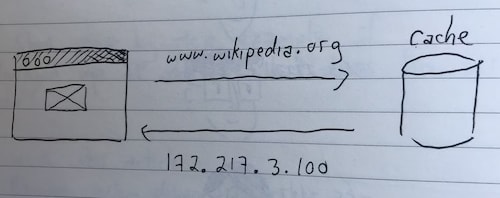 www.wikipedia.org
cache
172.217.3.100